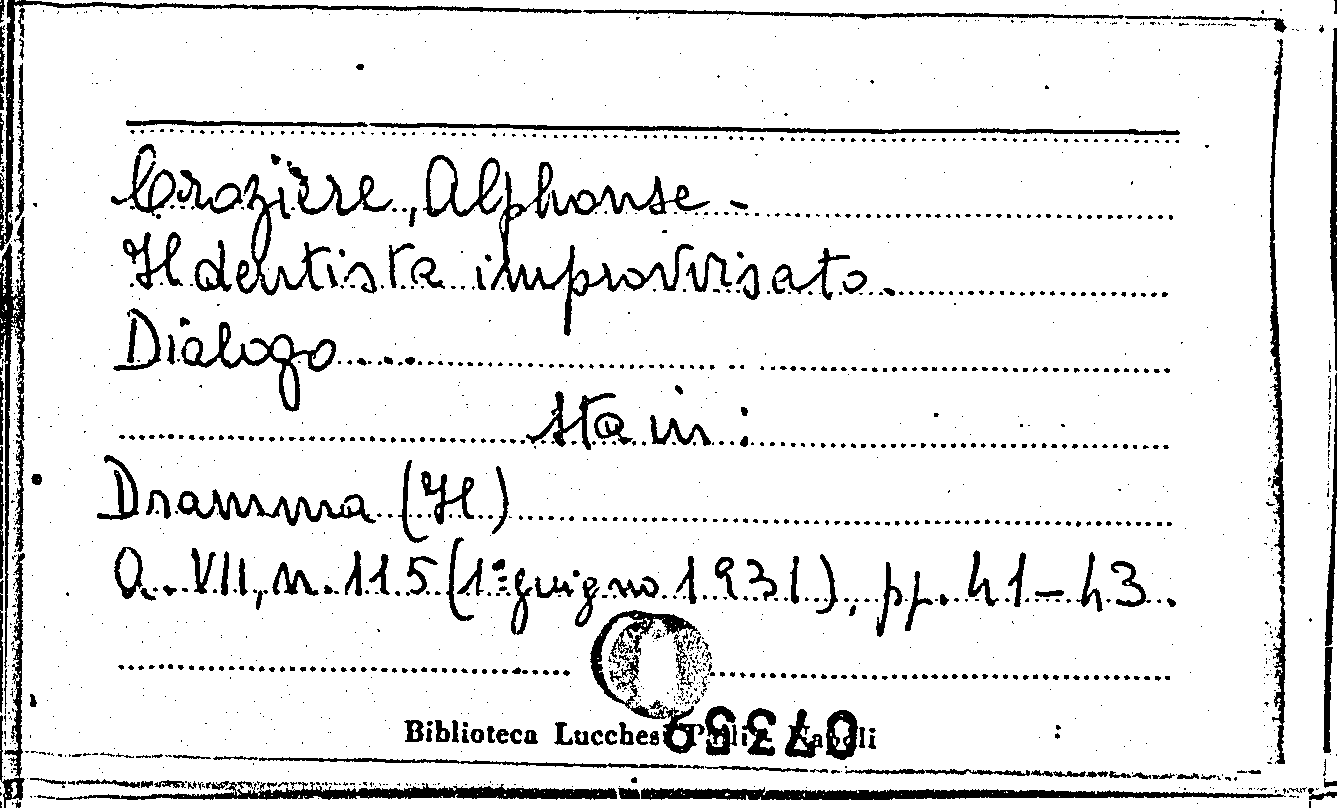 Crozière, Alphonse -
Il dentista improvvisato.
Dialogo...
sta in:
Dramma (Il)
A. VII, n. 115 (1º giugno 1931), pp. 41-43.
Biblioteca Lucchesi Palli - Napoli
07359